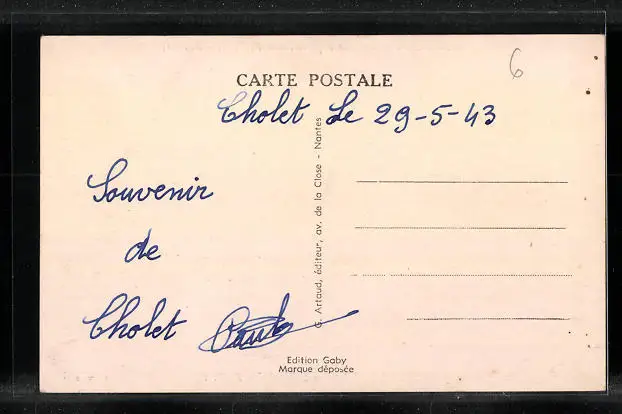 6
CARTE POSTALE
Cholet Le 29-5-43
Souvenir
de
Cholet
G. Artaud, éditeur, av. de la Close - Nantes
Edition Gaby
Marque déposée